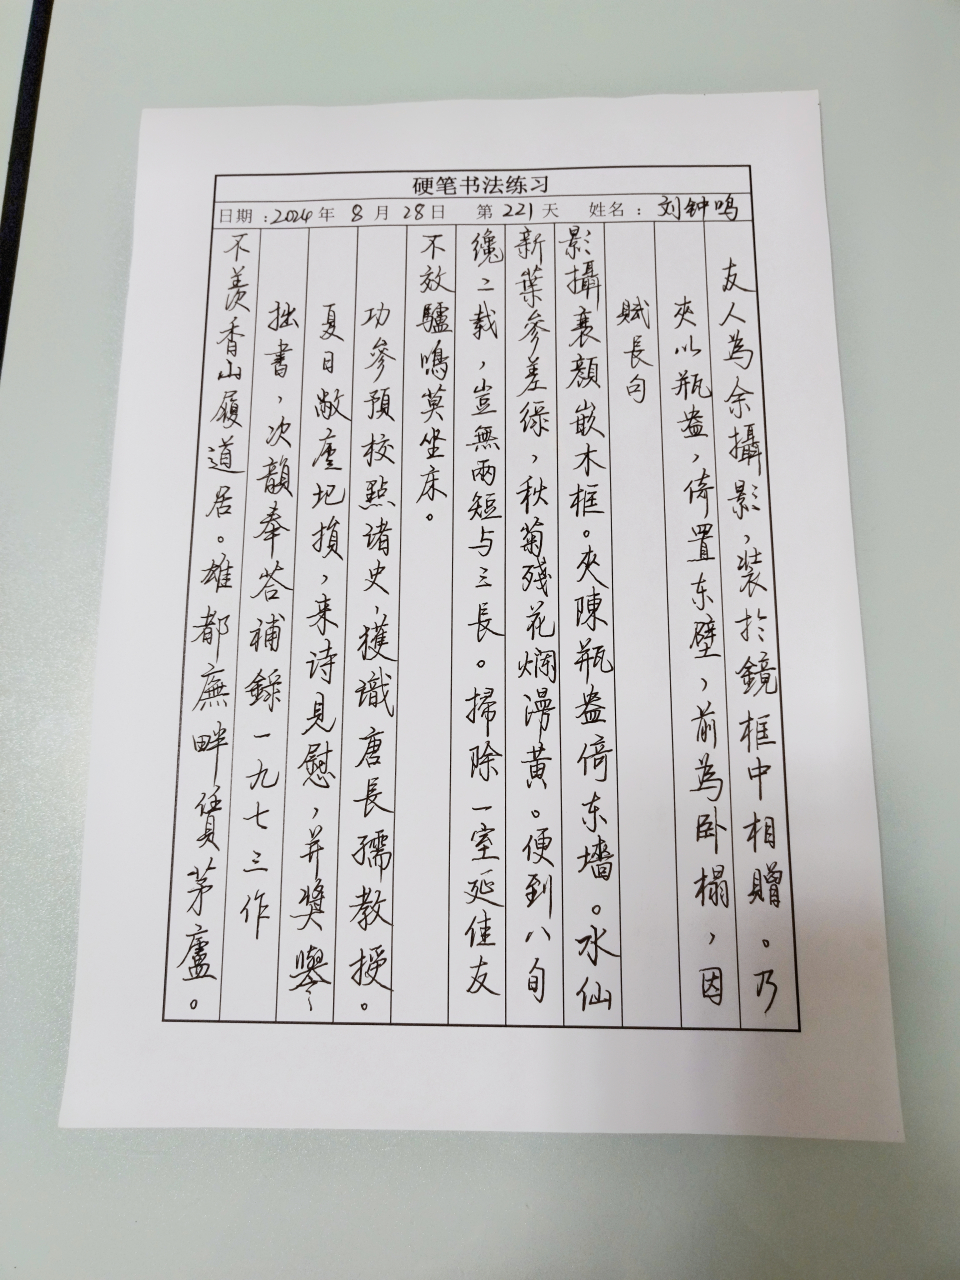 硬笔书法练习
日期：2024年 8月 28日 第 221天 姓名：刘钟鸣
友人為余攝影，裝於鏡框中相贈。乃
夾以瓶盎，倚置东壁，前為卧榻，因
賦長句
影攝衰顏嵌木框。夾陳瓶盎倚东墻。水仙
新葉參差绿，秋菊殘花烂漫黄。便到八旬
纔二载，豈無兩短与三長。掃除一室延佳友
不效驢鳴莫坐床。
功參預校點诸史，獲識唐長孺教授。
夏日敝廬圮損，来诗見慰，并獎譽
拙書，次韻奉荅補錄一九七三作
不羨香山履道居。雄都廡畔賃茅廬。